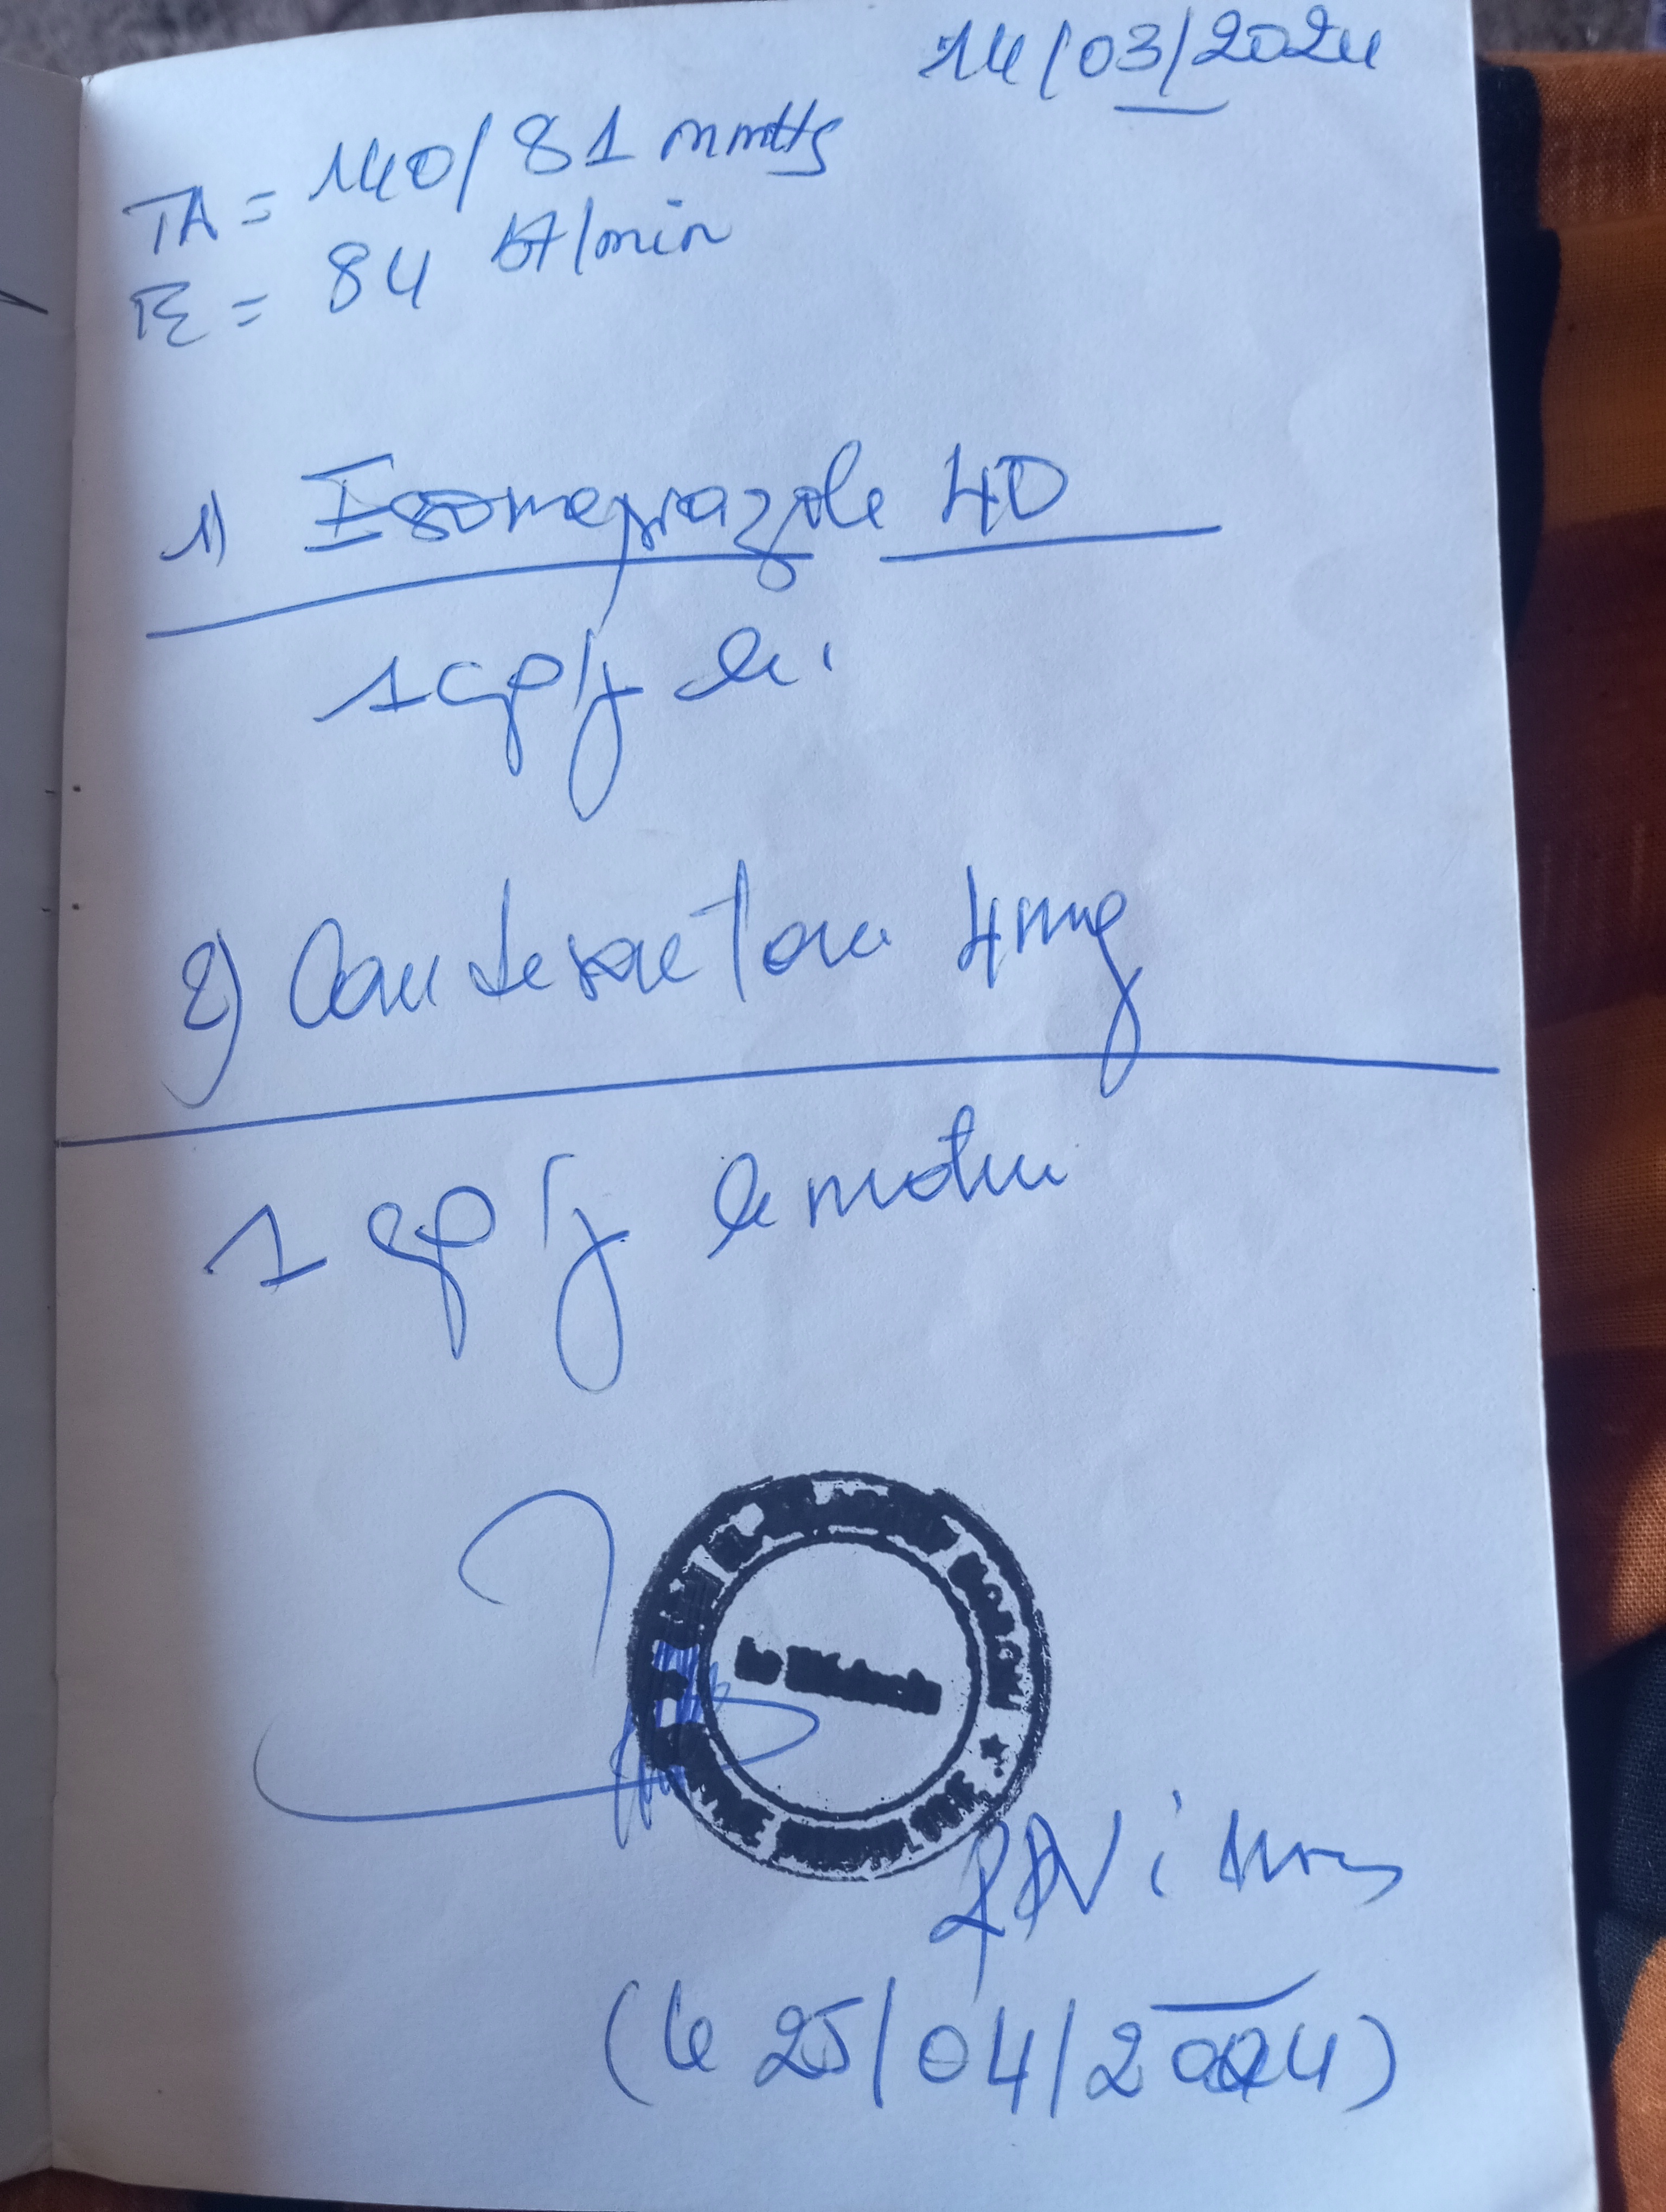 14/03/2024
TA = 140/81 mmHg
= 84 bt/min
1) Esomeprazole 40
1 cp/j le
2) Candesartan 4mg
1 cp/j le matin
RDV 1 mois
(le 25/04/2024)